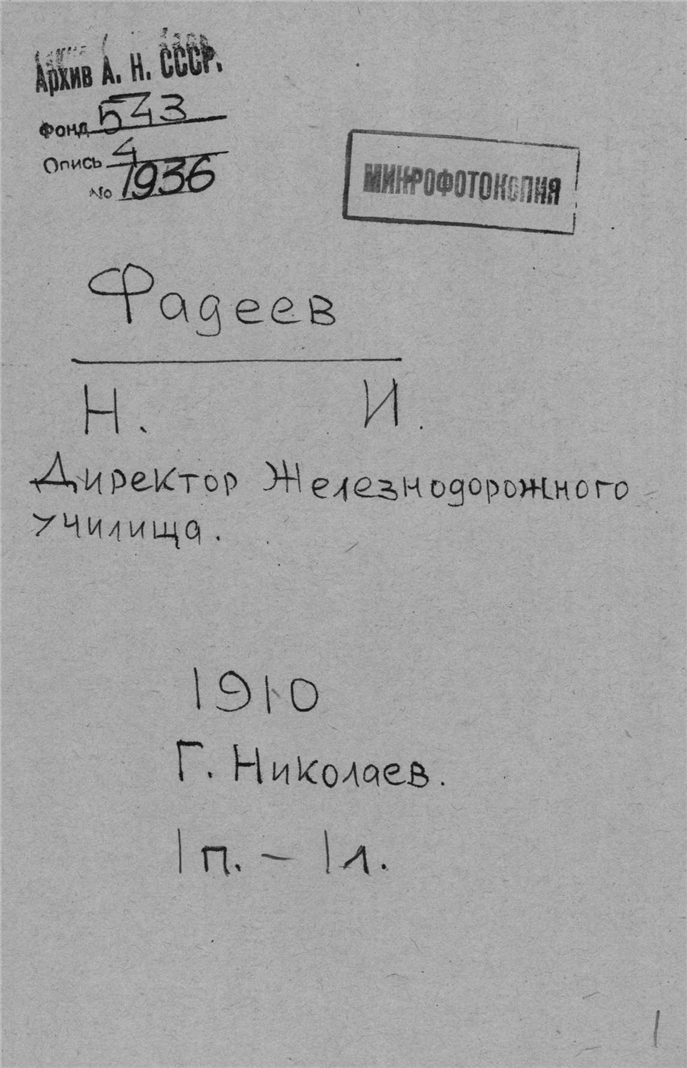 Архив А. Н. СССР.
Фонд 543
Опись 4
№ 1936
МИКРОФОТОКОПИЯ
Фадеев
Н. И.
Директор Железнодорожного
училища.
1910
Г. Николаев.
1 п. – 1 л.
1